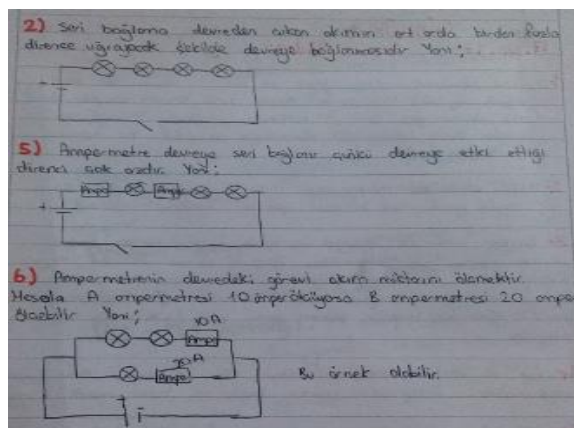 2) Seri bağlama devreden çıkan akımın art arda birden fazla
dirence uğrayacak şekilde devreye bağlanmasıdır Yani;
5) Ampermetre devreye seri bağlanır çünkü devreye etki ettiği
direnci çok azdır. Yani:
+ Amper Amper
6) Ampermetrenin devredeki görevi akım miktarını ölçmektir.
Mesela A ampermetresi 10 amper ölçüyorsa B ampermetresi 20 ampe
ölçebilir Yani;
10A
Amper
20A
Amper
Bu örnek olabilir.